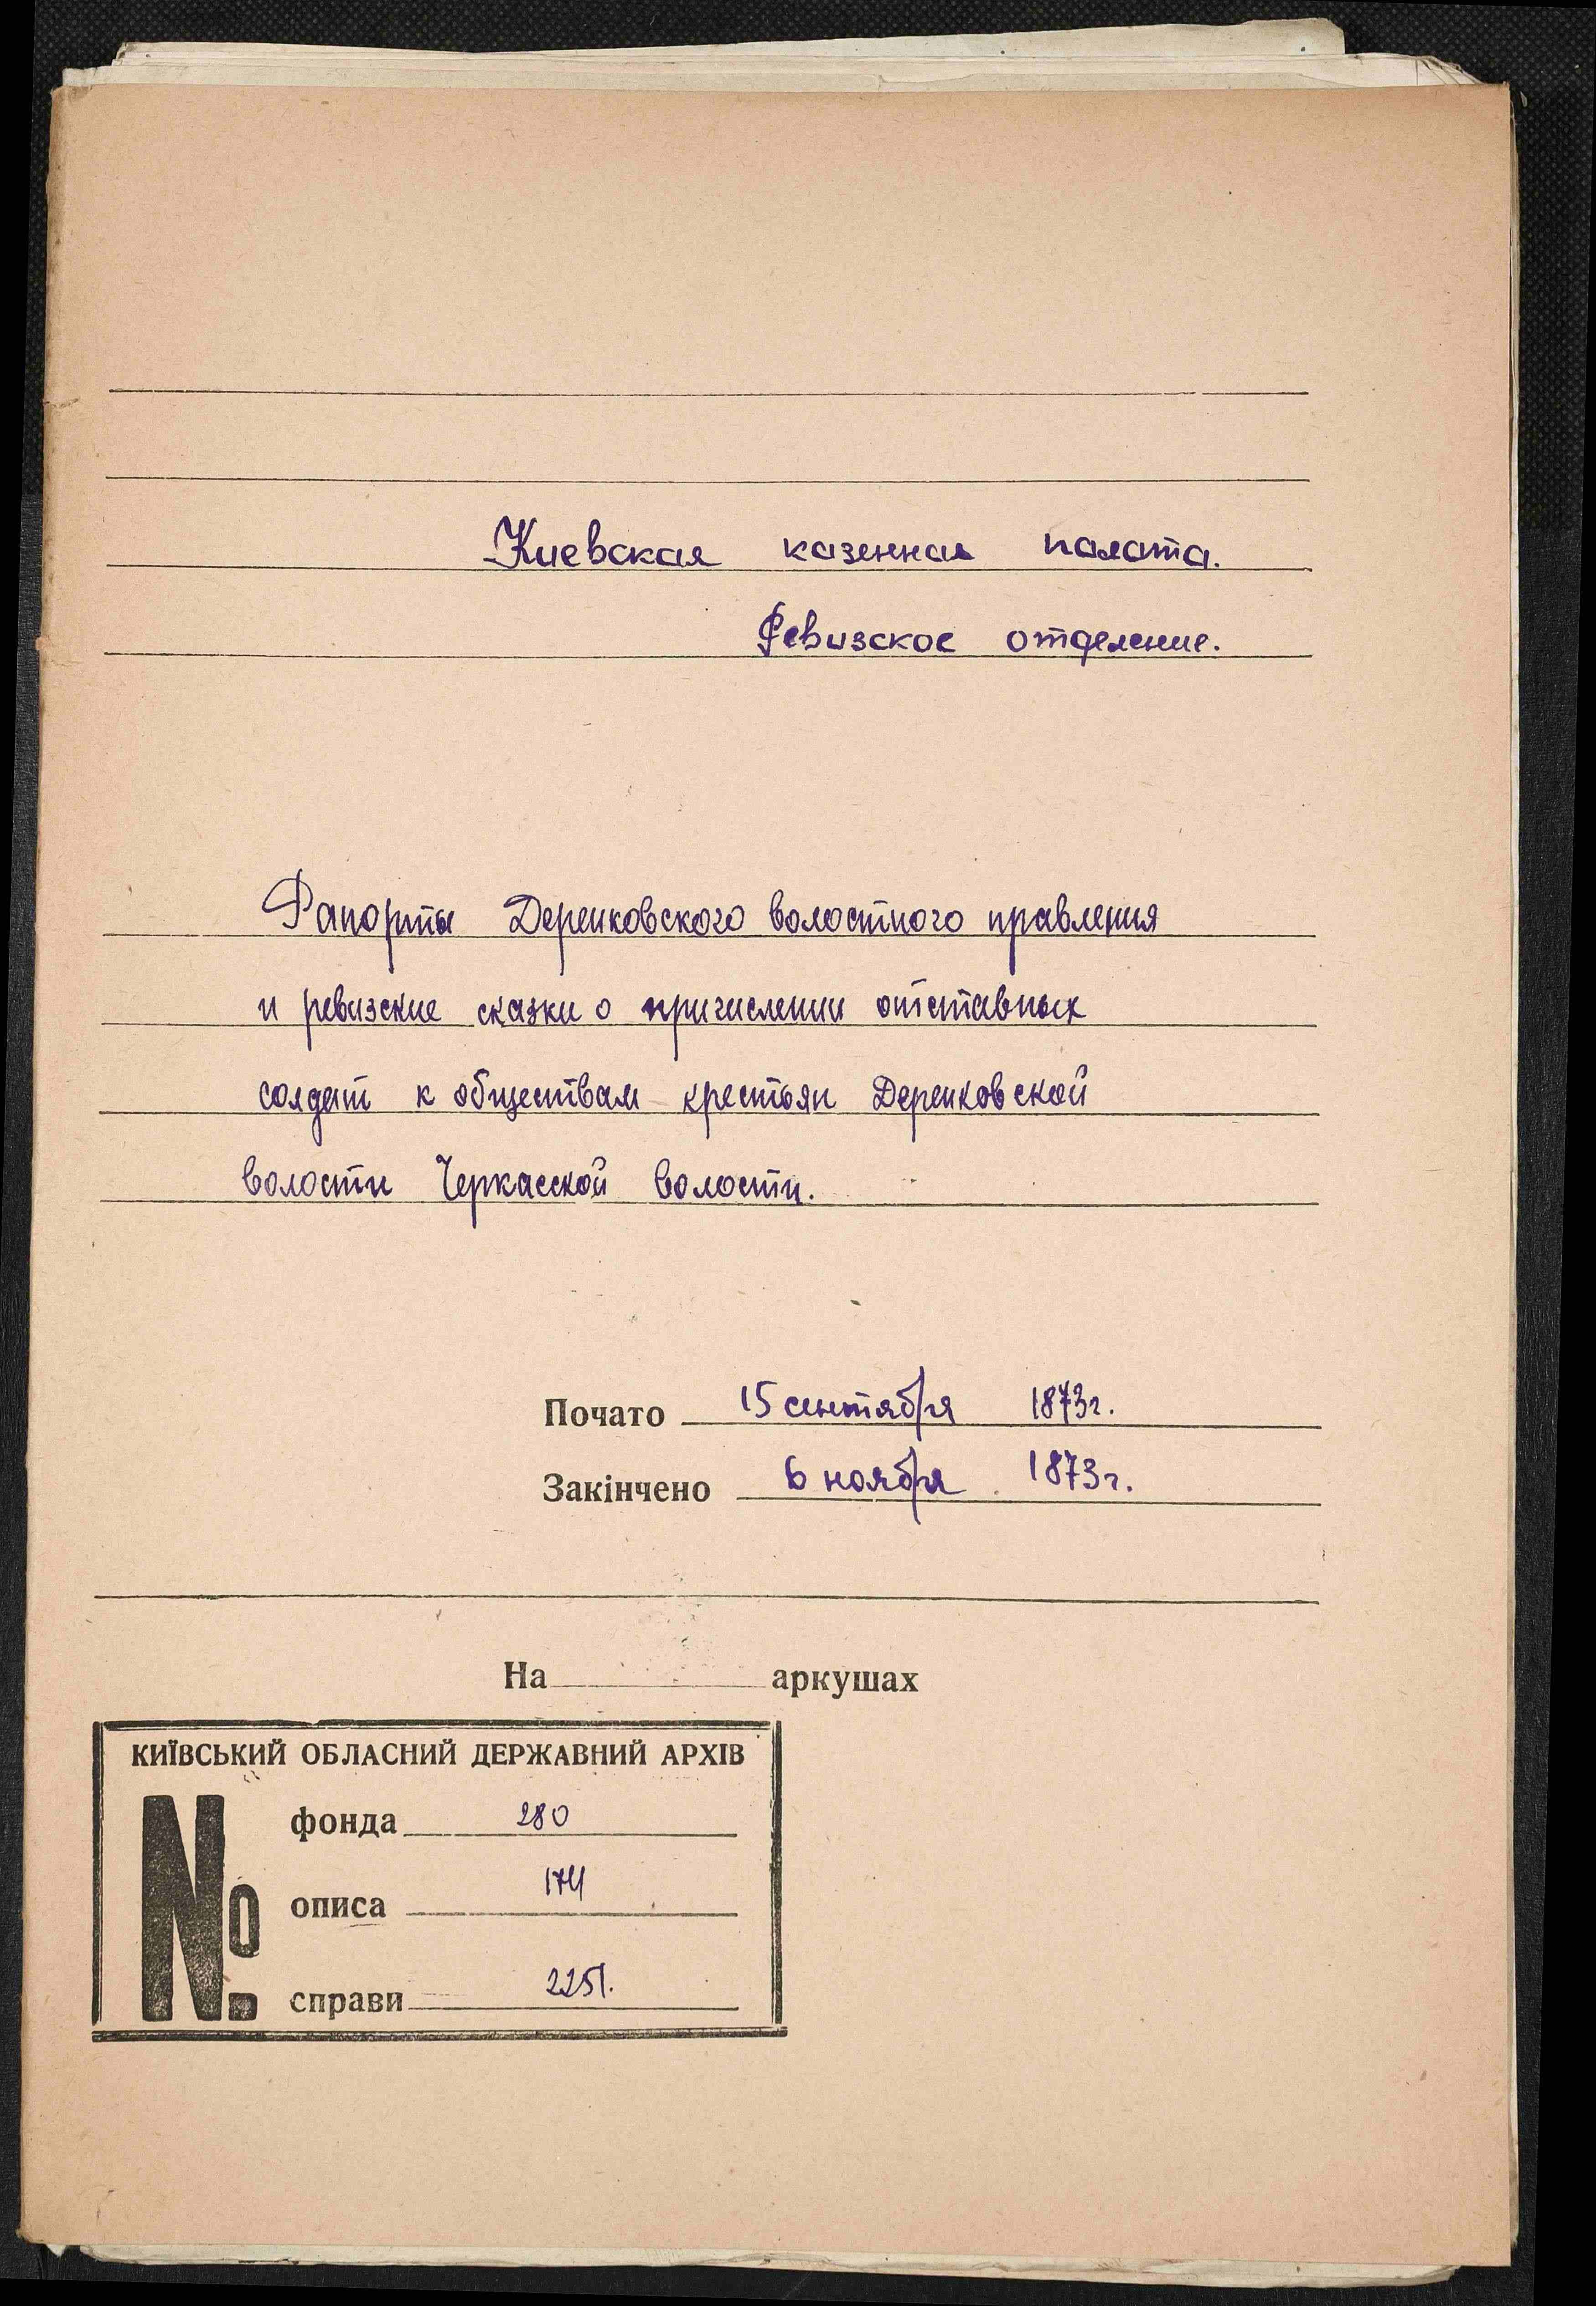 Киевская казенная палата.
Ревизское отделение.
Рапорты Деренковского волостного правления
и ревизские сказки о причислении отставных
солдат к обществам крестьян Деренковской
волости Черкасской волости.
Почато 15 сентября 1873г.
Закінчено 6 ноября 1873г.
На аркушах
КИЇВСЬКИЙ ОБЛАСНИЙ ДЕРЖАВНИЙ АРХІВ
№ фонда 280
описа 174
справи 2251.